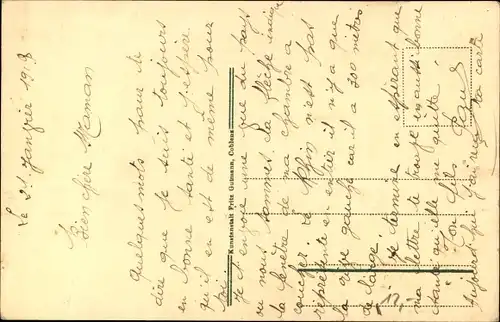 Le 21 Janvier 1918
Bien chère Maman
Quelques mots pour te
dire que je suis toujours
en bonne santé et j'espère
qu'il en est de même pour
toi.
Je t'envoie une vue du pays
ou nous sommes la flèche indique
la fenêtre de ma chambre a
coucher. Le Rhin n'est pas
représenté en entier il n'y a que
la rive gauche car il a 300 mètres
de large.
Je termine en espérant que
ma lettre te trouve en aussi bonne
santé qu'elle me quitte
Ton fils Paul
ta carte
Kunstanstalt Fritz Gutmann, Coblenz